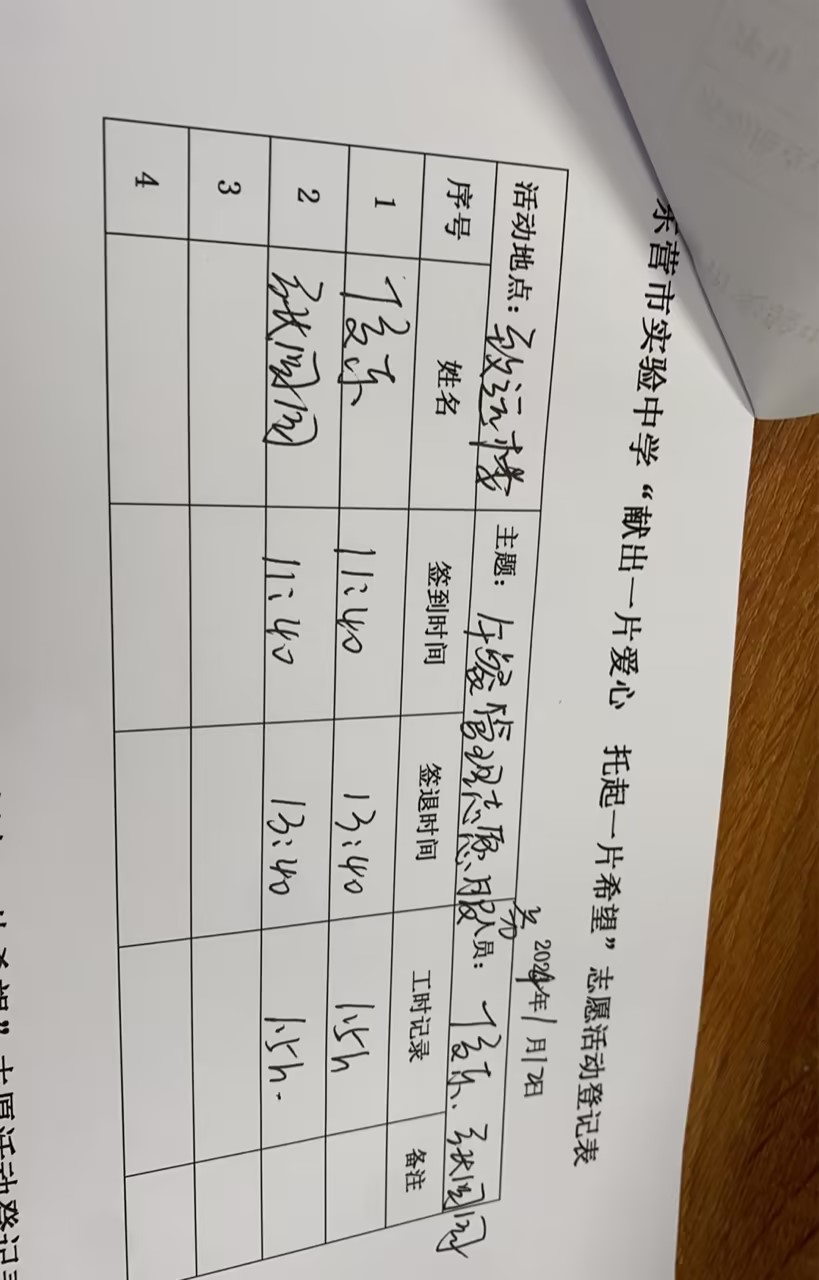 东营市实验中学“献出一片爱心 托起一片希望”志愿活动登记表
2024年1月12日
活动地点：致远楼 主题：午餐管理志愿服务 人员：
序号 姓名 签到时间 签退时间 工时记录 备注
1 11:40 13:40 1.5h
2 11:40 13:40 1.5h.
3
4